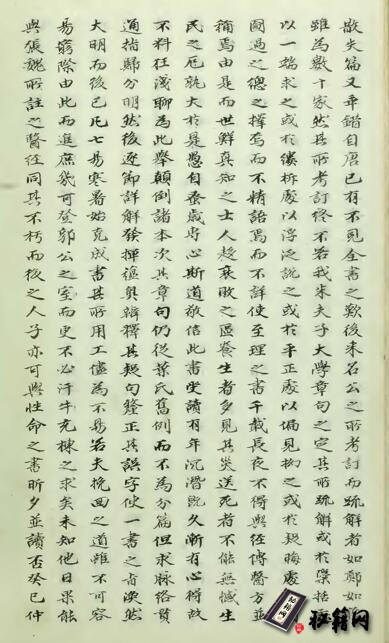 散失篇又舛錯自唐已有不見全書之歎後來名公之所考訂而疏解者如鄭如
雖為數十家然其所考訂終不若我朱夫子大學章句之定其所疏解或於喫括
以一端求之或於縷析處以浮泛說之或於平正處以偏見拘之或於疑晦處
圖過之總之擇焉而不精語焉而不詳使至理之書千載長夜不得與經傳醫方並
稱焉由是而世鮮真知之士人趍衰敗之區養生者多見其災送死者不能無憾生
民之厄孰大於是愚自蚤歲專心斯道敬信此書坐讀有年沉潛既久漸有心得故
不料狂淺聊為此舉顛倒諸本次其章句仍從葉氏舊例而不為分篇但求脉絡貫
通指歸分明然後逐節詳解發揮蘊奧辯釋其疑句釐正其誤字使一書之旨渙然
大明而後已凡七易寒暑始克成書其所用工儘為不易若夫挽回之道雖不可容
易窮際由此而進庶幾可登郭公之室而更不必汗牛充棟之求矣未知他日果能
與張魏所註之醫經同其不朽而後之人子亦可與性命之書昕夕並讀否癸巳仲
秘籍网